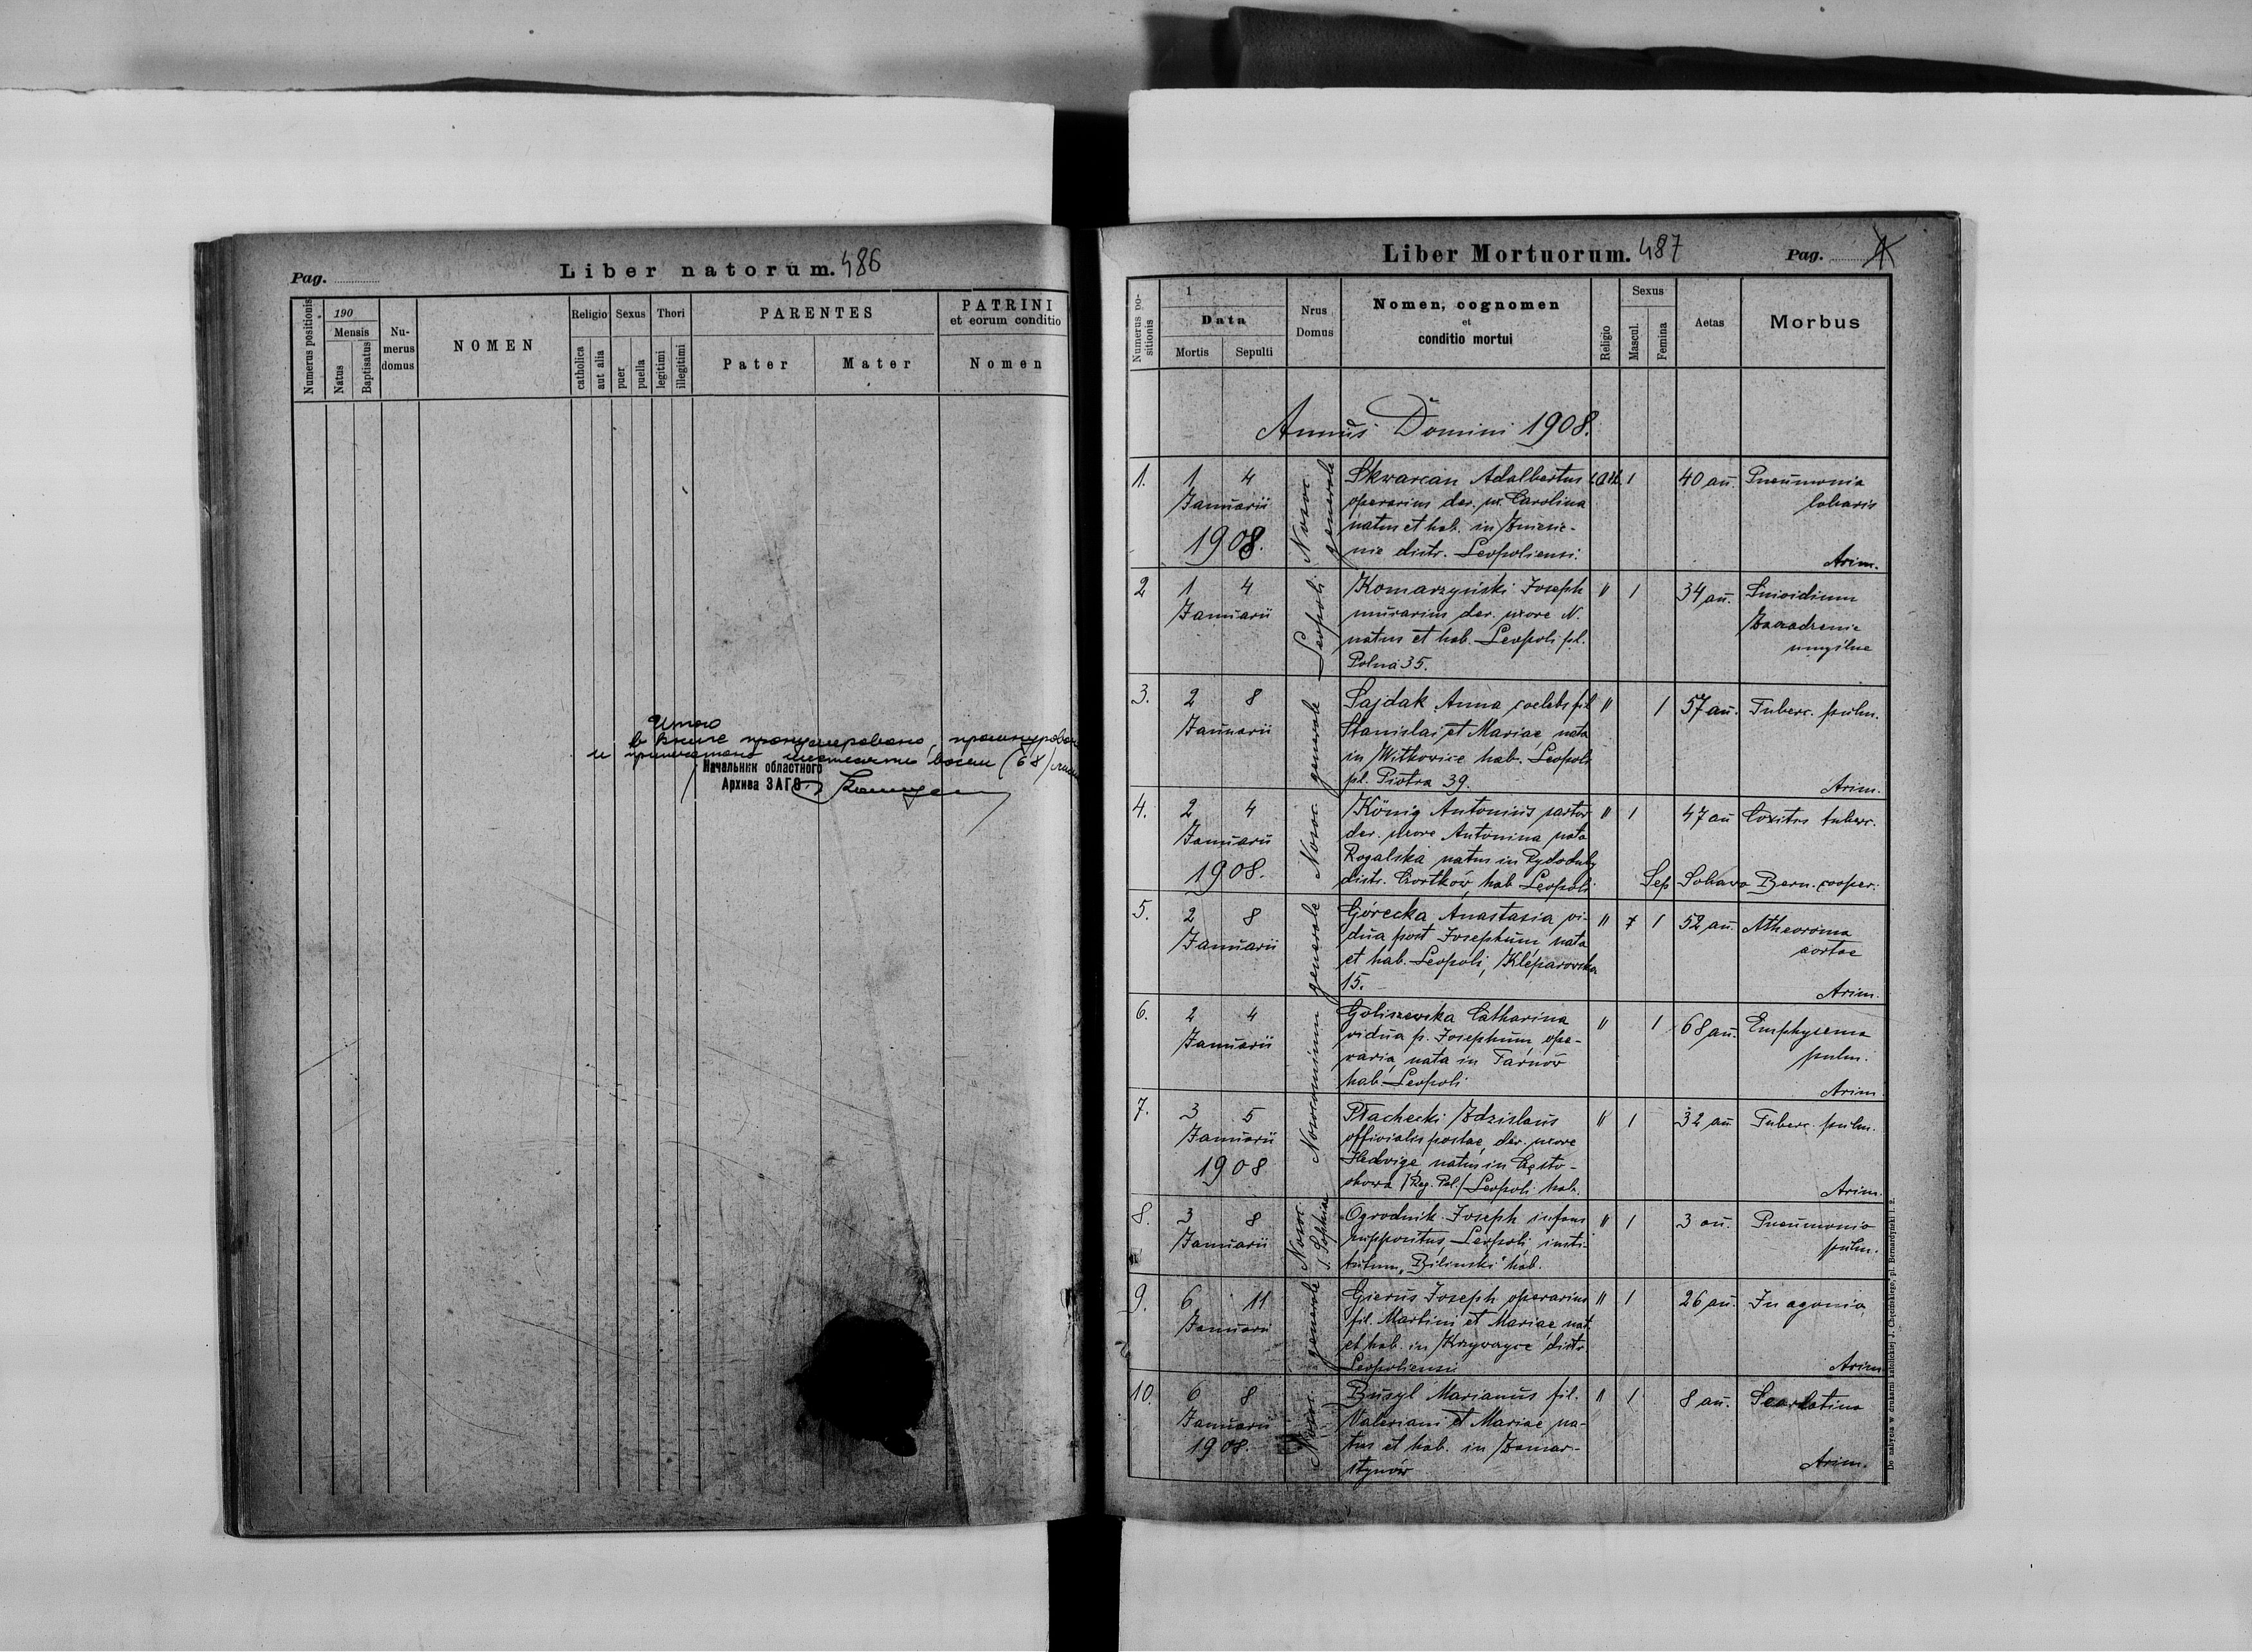 Pag.
Liber natorum. 486
Numerus positionis
190
Mensis
Natus
Baptisatus
Nu-
merus
domus
NOMEN
Religio
catholica
aut alia
Sexus
puer
puella
Thori
legitimi
illegitimi
PARENTES
Pater
Mater
PATRINI
et eorum conditio
Nomen
Итого
в книге пронумеровано, прошнуровано
и
восем (68)
Начальник областного
Архива ЗАГС
Liber Mortuorum. 487
Pag.
Numerus po-
sitionis
1
Data
Mortis
Sepulti
Nrus
Domus
Nomen, cognomen
et
conditio mortui
Religio
Sexus
Mascul.
Femina
Aetas
Morbus
Annus Domini 1908.
1. 1 4 Skwarcan Adalbertus 1 40 an. Pneumonia
Januarii operarius der. ux. Carolina lobaris
natus et hab. in
1908. nie distr. Leopoliensi. Arim.
Nosoc. generale
2 1 4 Komarzyński Joseph " 1 34 an. Suicidium
Januarii murarius der. uxore N. Zaczadzenie
natus et hab. Leopoli pl. umyślne
Polna 35.
Leopoli
3. 2 8 Sajdak Anna coelebs fil. " 1 57 an. Tuberc. pulm.
Januarii Stanislai et Mariae nata
in Witkowice hab. Leopoli
pl. Piotra 39. Arim.
Nosoc. generale
4. 2 4 König Antonius sartor " 1 47 an Coxitis tuberc.
Januarii der. uxore Antonina nata
Rogalska natus in Rydoduby
1908. distr. Czortków, hab Leopoli Sep Bern. cooper.
5. 2 8 Górecka Anastasia vi- " 1 52 an. Atheoroma
Januarii dua post Josephum nata aortae
et hab. Leopoli, Kleparowska
15. Arim.
Nosocomium generale
6. 2 4 Goliszewska Catharina " 1 68 an. Emphysema
Januarii vidua p. Josephum, ope- pulm.
raria, nata in Tarnów
hab. Leopoli Arim
7. 3 5 Płachecki Zdzislaus " 1 32 an Tuberc. pulm.
Januarii officialis postae, der. uxore
1908 Hedvige natus in Często-
chowa /Reg. Pol./ Leopoli hab. Arim.
8. 3 8 Ogrodnik Joseph infans " 1 3 an. Pneumonia
Januarii suppositus, Leopoli, insti- pulm.
tutum „Biliński" hab.
Nosoc. S. Sophiae
9. 6 11 Gierus Joseph, operarius " 1 26 an. In agonia
Januarii fil. Martini et Mariae nat.
et hab. in Krzywczyce distr.
Leopoliensi Arim
generale
10. 6 8 Busyl Marianus fil. " 1 8 an. Scarlatina
Januarii Valeriani et Mariae na-
1908. tus et hab. in Zamar-
stynów Arim.
Nosoc.
Do nabycia w drukarni katolickiej J. Chęcińskiego, pl. Bernardyński l. 2.